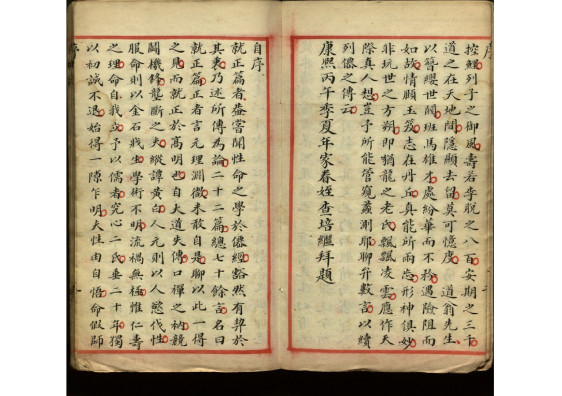 序
控鯉列子之御風壽若李脫之八百安期之三千
道之在天地間隱顯去留莫可憶度道翁先生
以簪纓世閥班馬雄才處紛華而不矜遇險阻而
如故情願玉笈志在丹丘真能所兩忘形神俱妙
非玩世之方朔即猶龍之老氏飄飄凌雲應作天
際真人想豈予所能管窺蠡測耶聊弁數言以續
列僊之傳云
康熙丙午季夏年家眷姪查培繼拜題
自序
就正篇者蓋嘗聞性命之學於僊經豁然有契於
其衷乃述所傳為論二十二篇總七十餘言名曰
就正篇正者言元理淵微未敢自是聊以此一得
之見而就正於高明也自大道失傳口禪之衲競
鬬機鋒壟斷之夫縱譚黃白人元則以人慾伐性
服食則以金石戕生學術不明流禍無極惟仁壽
之理命自我立予以儒者究心二氏垂二十年獨
以初誠不退始得一隙乍明夫性由自悟命假師
序